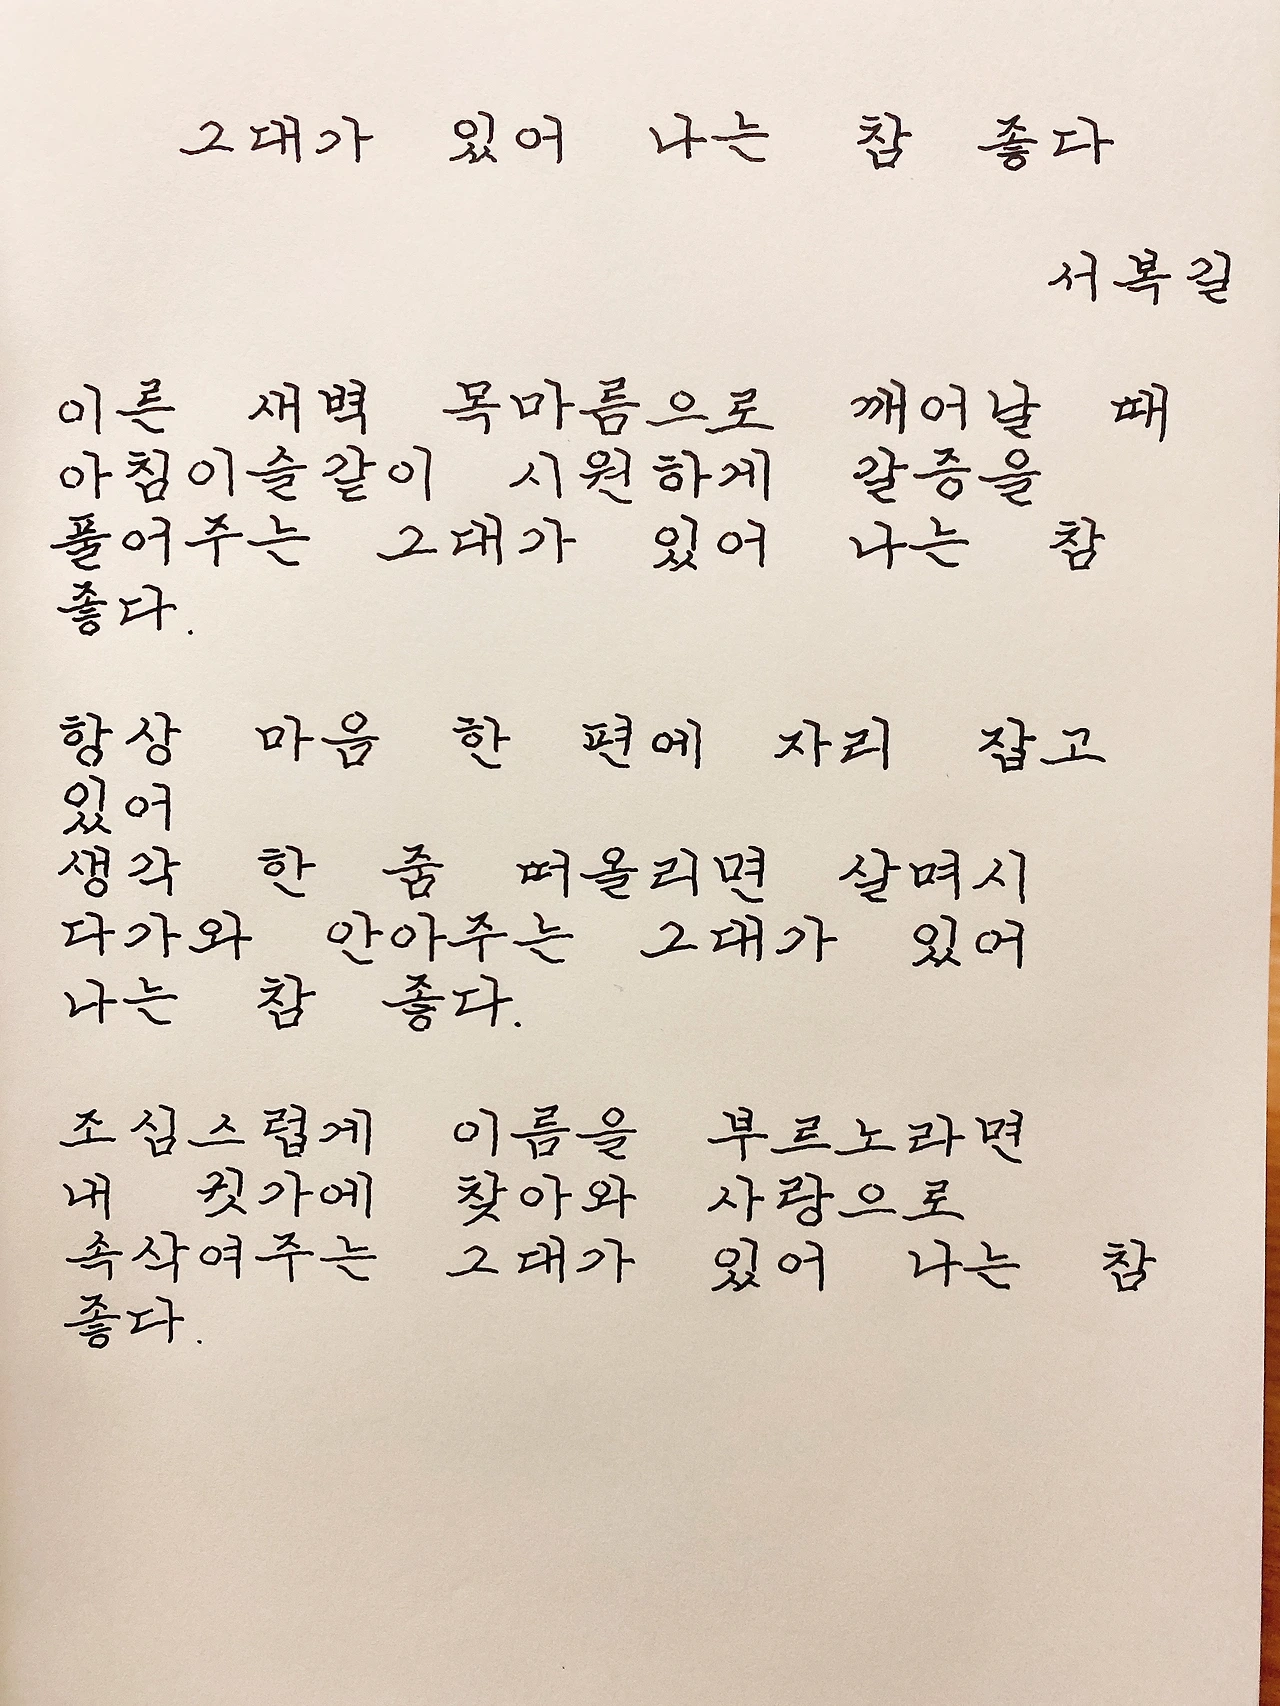 그대가 있어 나는 참 좋다
서복길
이른 새벽 목마름으로 깨어날 때
아침이슬같이 시원하게 갈증을
풀어주는 그대가 있어 나는 참
좋다.
항상 마음 한 편에 자리 잡고
있어
생각 한 줌 떠올리면 살며시
다가와 안아주는 그대가 있어
나는 참 좋다.
조심스럽게 이름을 부르노라면
내 귓가에 찾아와 사랑으로
속삭여주는 그대가 있어 나는 참
좋다.